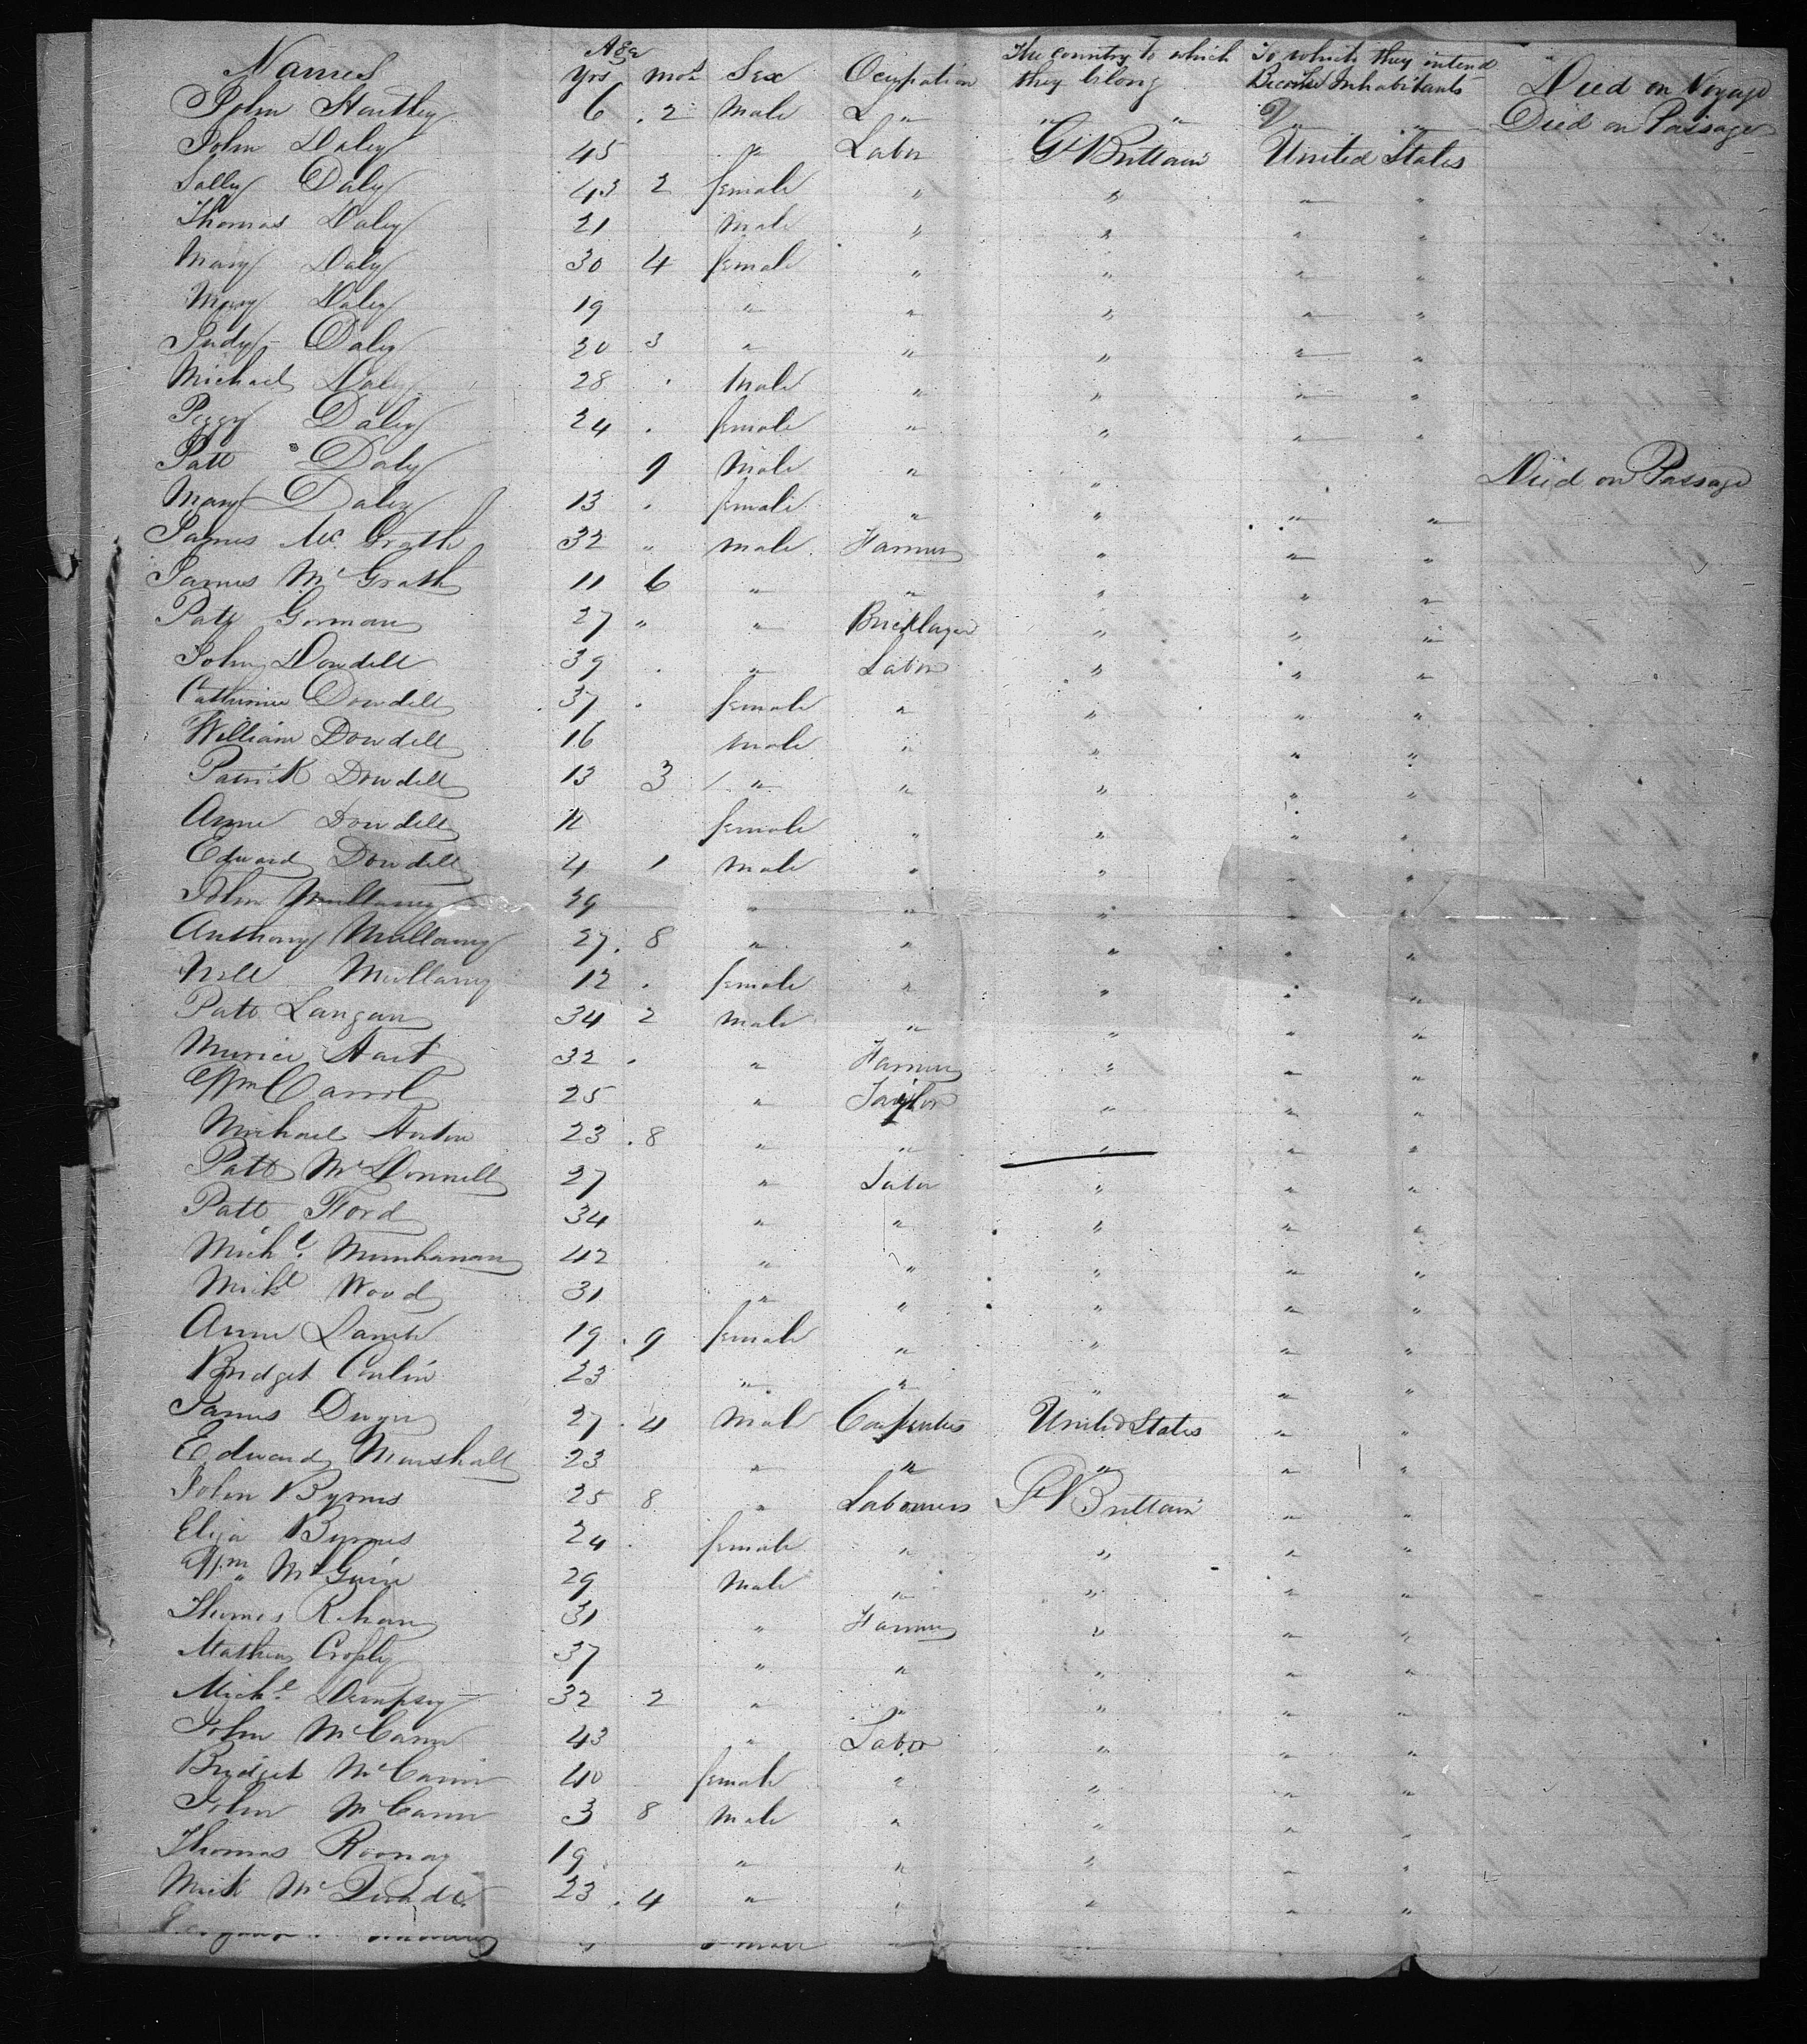 Age The country to which To which they intend
Names Yrs Mos Sex Ocupation they belong Become Inhabitants Died on Voyage
John Hartley 6 . 2 Male L " " " " " Died on Passage
John Daley 45 " Labor Gt Brittain United States
Sally Daly 43 2 female " " " "
Thomas Daley 21 Male " " " "
Mary Daly 30 4 female " " " "
Mary Daley 19 " " " " "
Judy Daley 30 3 " " " " "
Michael Daley 28 . Male " " " "
Peggy Daley 24 . female " " " "
Patt Daly 9 Male " " Died on Passage
Mary Daley 13 . female " " " "
James Mc. Grath 32 " Male Farmer " " "
James Mc Grath 11 6 " " " " "
Patt Gorman 27 " " Bricklayer " " "
John Dowdell 39 . " Labor " " "
Catherine Dowdell 37 . female " " " "
William Dowdell 16 Male " " " "
Patrick Dowdell 13 3 " " " " "
Anne Dowdell 11 female " " " "
Edward Dowdell 4 1 Male " " " "
John Mullany 39 " " " " "
Anthony Mullany 27 . 8 " " " " "
Nell Mullany 12 . female " " " "
Patt Langan 34 2 Male " " " "
Murice Hart 32 . " Farmer " " "
Wm Carrol 25 " Taylor " " "
Michael 23 . 8 " " " " "
Patt Mc Donnell 27 " Labor " " "
Patt Ford 34 " " " " "
Michl. 42 " " " " "
Michl Wood 31 " " " " "
Anne Lamb 19 . 9 female " " " "
Bridget Conlin 23 " " " " "
James Dwyer 27 . 4 Mal Carpenters United States " "
Edward Marshall 23 " " " " "
John Byrnes 25 8 " Labourers Gt Brittain " "
Eliza Byrnes 24 . female " " " "
Wm Mc Guire 29 Male " " " "
Thomas Rehan 31 " Farmer " " "
Mathew Croply 37 " " " " "
Michl. Dempsey 32 2 " " " " "
John Mc Cann 43 " Labor " " "
Bridget Mc Cann 40 female " " " "
John Mc Cann 3 8 Male " " " "
Thomas Roonay 19 " " " " "
Mick Mc 23 . 4 " " " " "